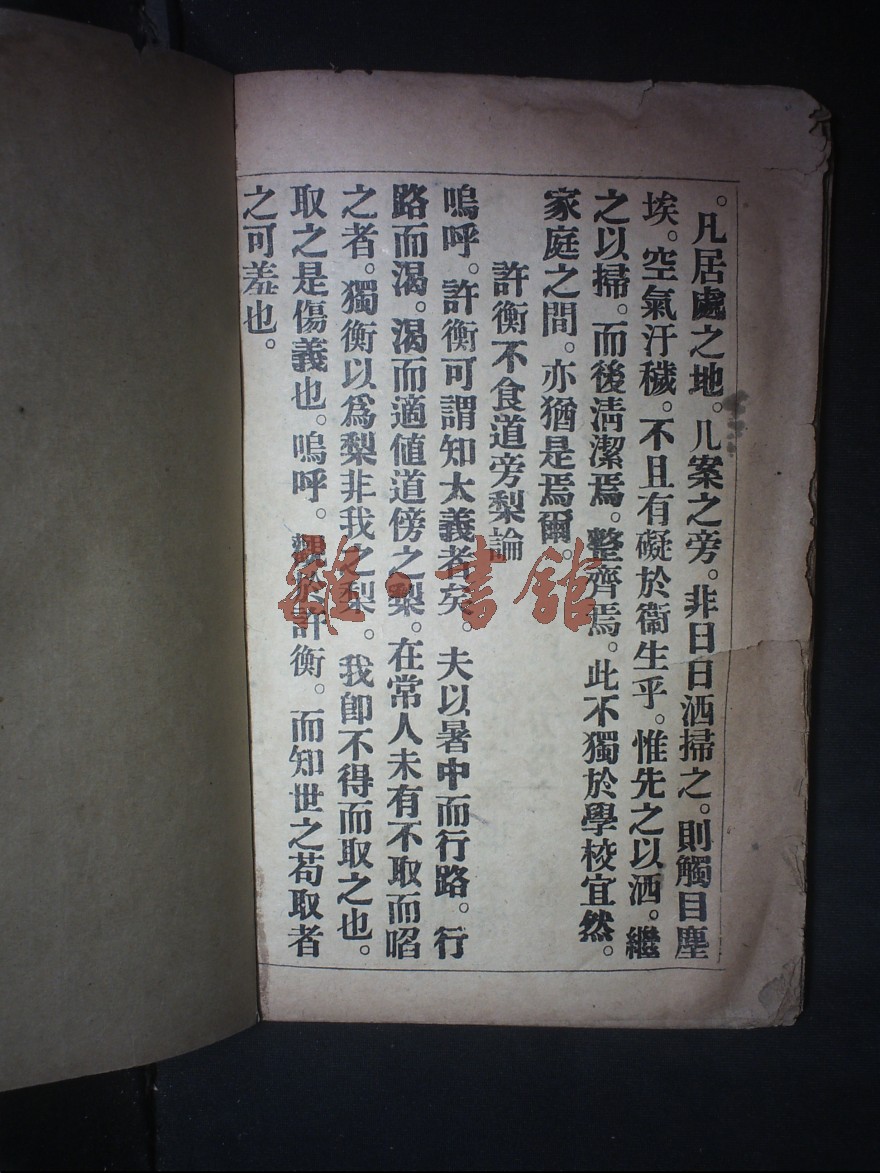 。凡居處之地。儿案之旁。非日日洒掃之。則觸目塵
埃。空氣汙穢。不且有礙於衞生乎。惟先之以洒。繼
之以掃。而後淸潔焉。整齊焉。此不獨於學校宜然。
家庭之間。亦猶是焉爾。
許衡不食道旁梨論
嗚呼。許衡可謂知大義者矣。夫以暑中而行路。行
路而渴。渴而適値道傍之梨。在常人未有不取而啗
之者。獨衡以爲梨非我之梨。我卽不得而取之也。
取之是傷義也。嗚呼。觀於許衡。而知世之苟取者
之可羞也。
雜·書館